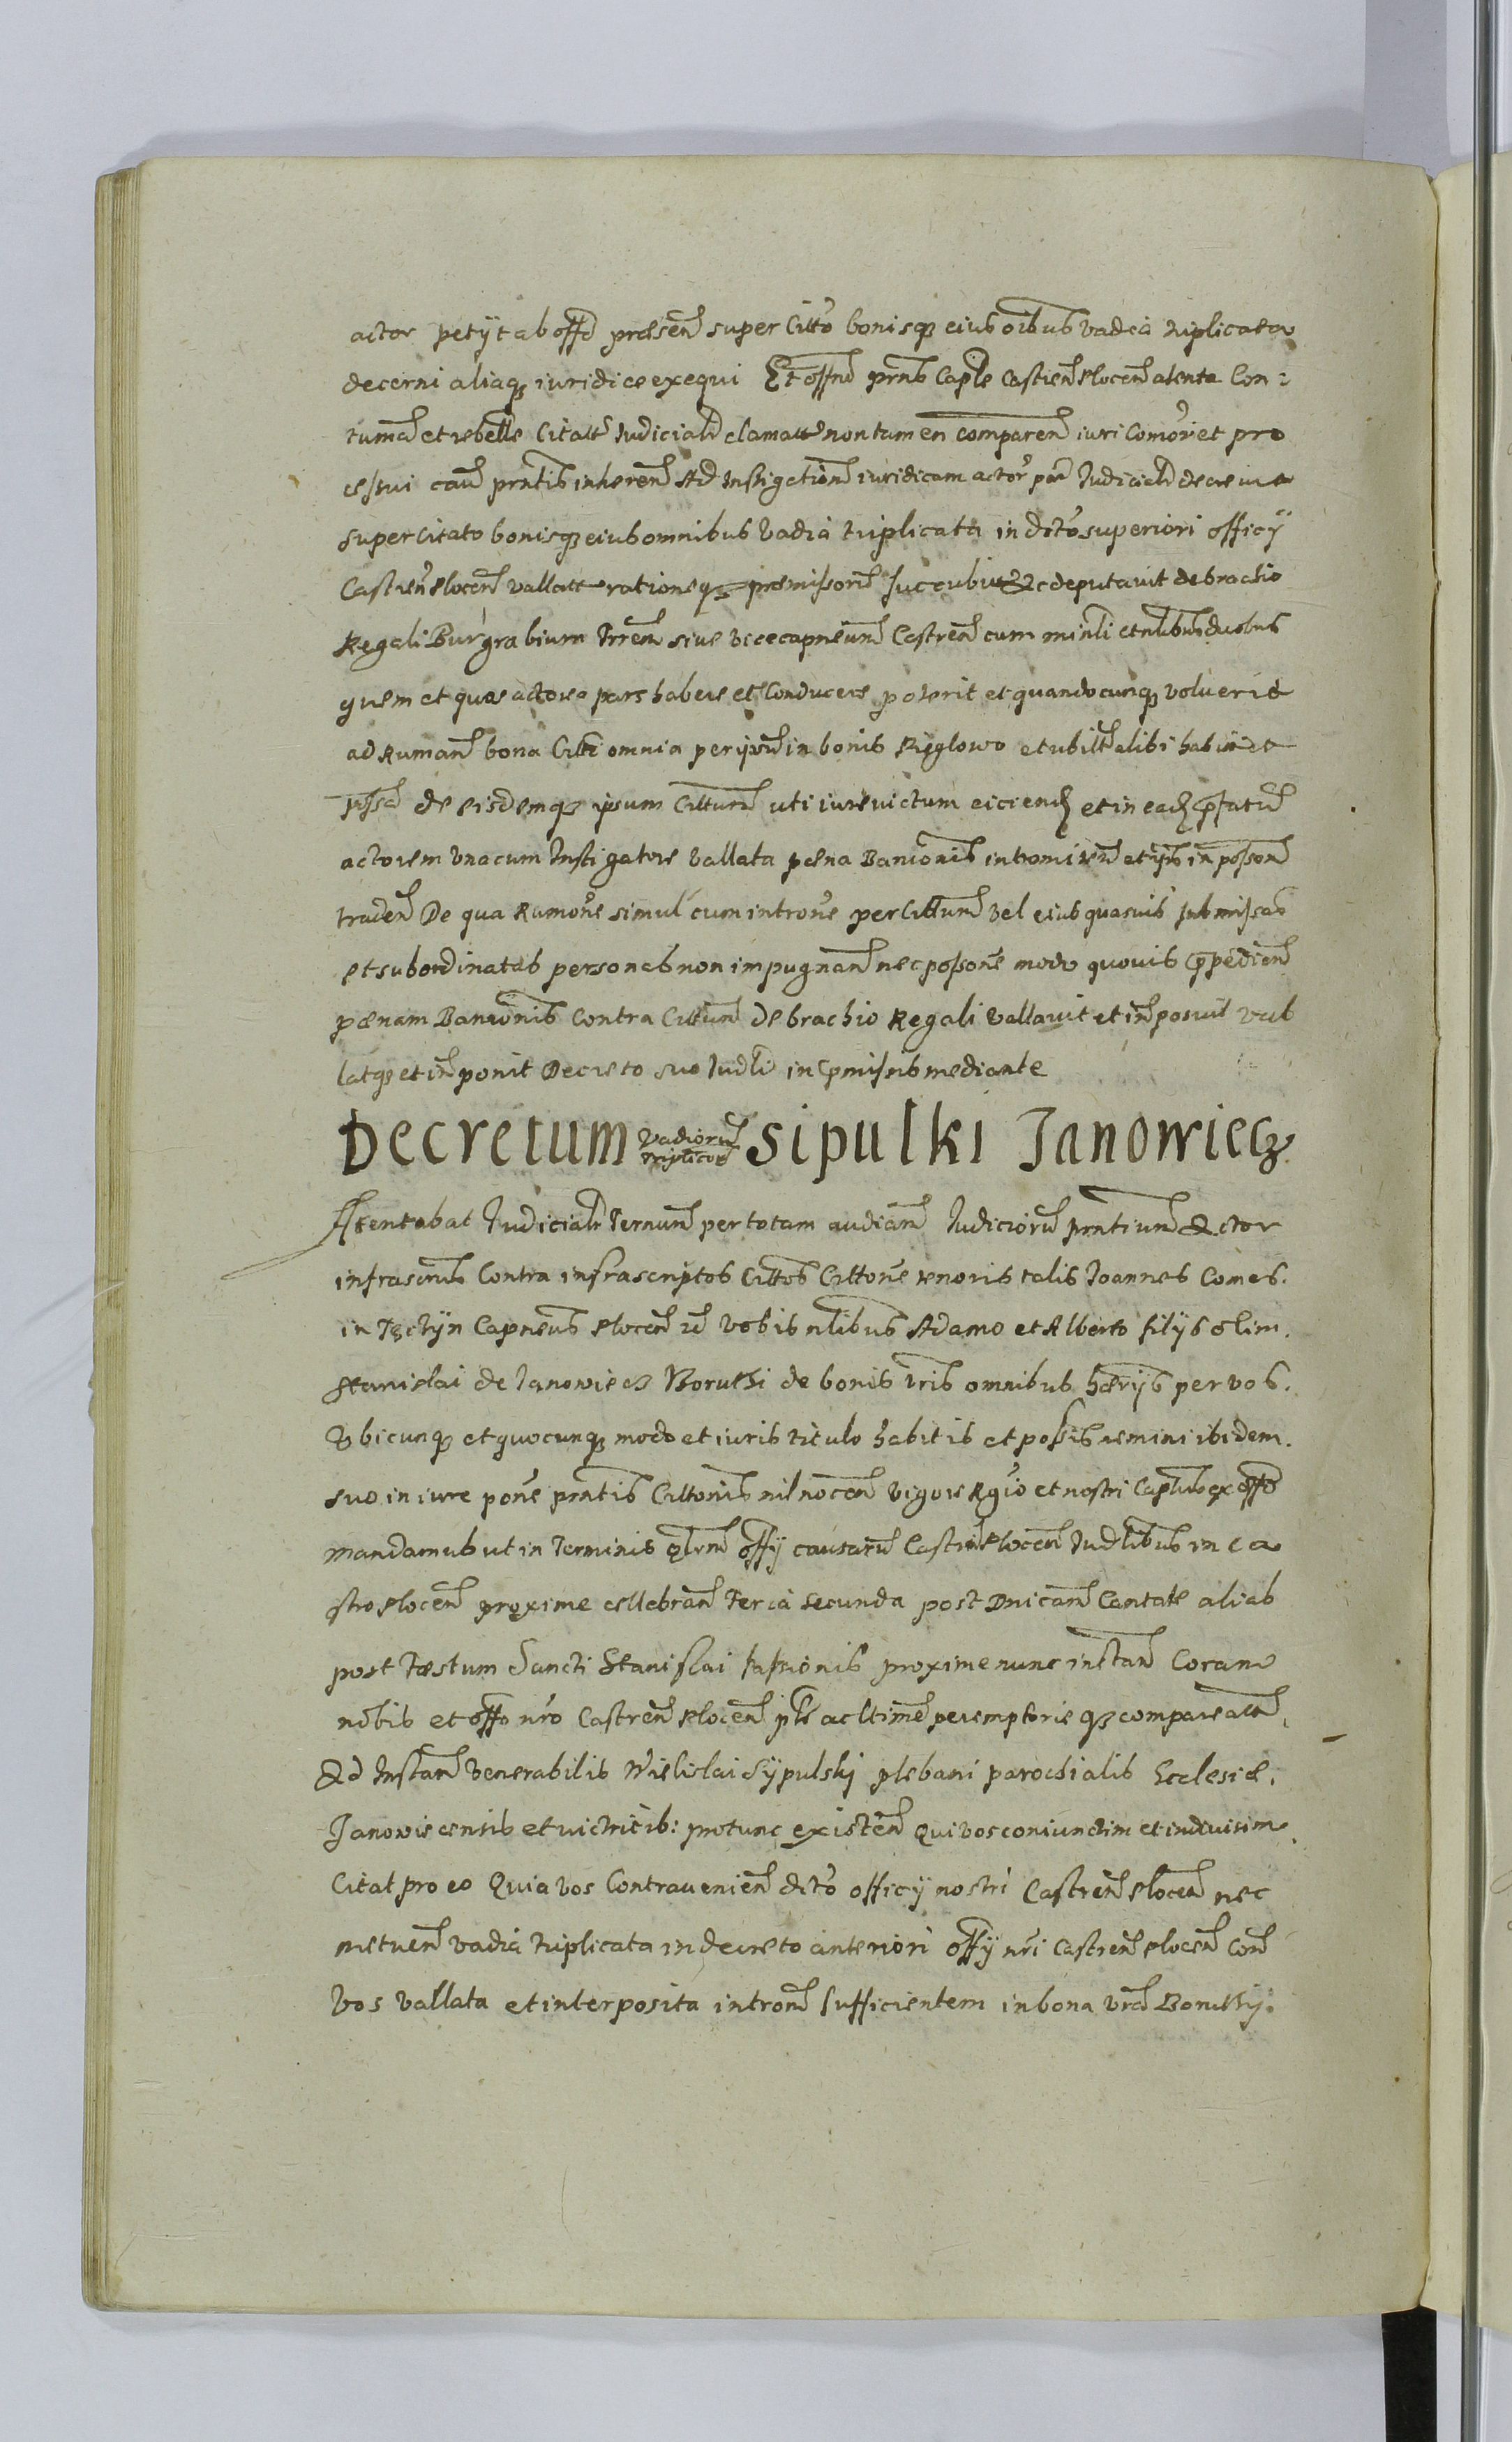 actor petÿt ab offo præsen super Citto bonisq eius oibus vadia triplicata
decerni aliaq iuridice exequi Et offm prns Caple Castren Plocen atenta Con:
tuma et rebelle Citatt Judicialr clamatt non tamen comparen iuri Comori et pro
cessui caus prntis inheren Ad Instigation iuridicam actor par Judicialr decreuit
super Citato bonisq eius omnibus vadia triplicata in dito superiori officÿ
Castren Plocen vallatt rationeq premissor succubit Ac deputauit de brachio
Regali Burgrabium Trren siue vicecapneum Castren cum minli et nlibus duobus
quem et quos actorea pars habere et Conducere poterit et quandocunq voluerit
ad Ruman bona Citti omnia per ipsu in bonis Ryglowo et ubilt alibi habit et
possa de eisdemq ipsum Cittum uti iure victum eiciend et in ead pfatu
actorem vnacum Instigatore vallata pæna Banionis intromitten et ips in posson
traden De qua Rumone simul cum introne per Cittum vel eius quasuis submissas
et subordinatas personas non impugnan nec possone modo quouis pepedien
pænam Banionis contra Cittum de brachio Regali vallauit et inposuit val
latq et inponit Decreto suo Judli in pmissis mediante
Decretum vadioru triplicor Sipulki Janowiecz
Atentabat Judicialr Ternum per totam audian Judicioru prntium Actor
infrascrus Contra infrascriptos Cittos Cittone tenoris talis Joannes Comes.
in Tęczyn Capneus Plocen re vobis nlibus Adamo et Alberto filÿs olim.
Stanislai de Janowiecz Boruthi de bonis vris omnibus hærÿs per vos.
Vbicunq et quocunq modo et iuris titulo habitis et possis nemini ibidem.
suo in iure pone prntis Cittonis nil nocen vigore Rgio et nostri Captus ex offo
mandamus ut in Terminis qlrnu offÿ causaru Castren Plocen Judlibus in ca
stro Plocen proxime cellebran Feria secunda post Dnicam Cantate alias
post Fæstum Sancti Stanislai passionis proxime nunc instan Coram
nobis et offo nro Castren Plocen ple ac ltime peremptorieq compareatis
Ad Instan venerabilis Wielislai Sÿpulskj plebani parochialis Ecclesiæ.
Janowiecensis et victricis: protunc existen Qui vos coniunctim et indiuisim
Citat pro eo Quia vos Contrauenien dito officÿ nostri Castren Plocen nec
metuen vadia triplicata in decreto anteriori offÿ nri Castren Plocen con
vos vallata et interposita intron sufficientem in bona vra Boruthÿ.